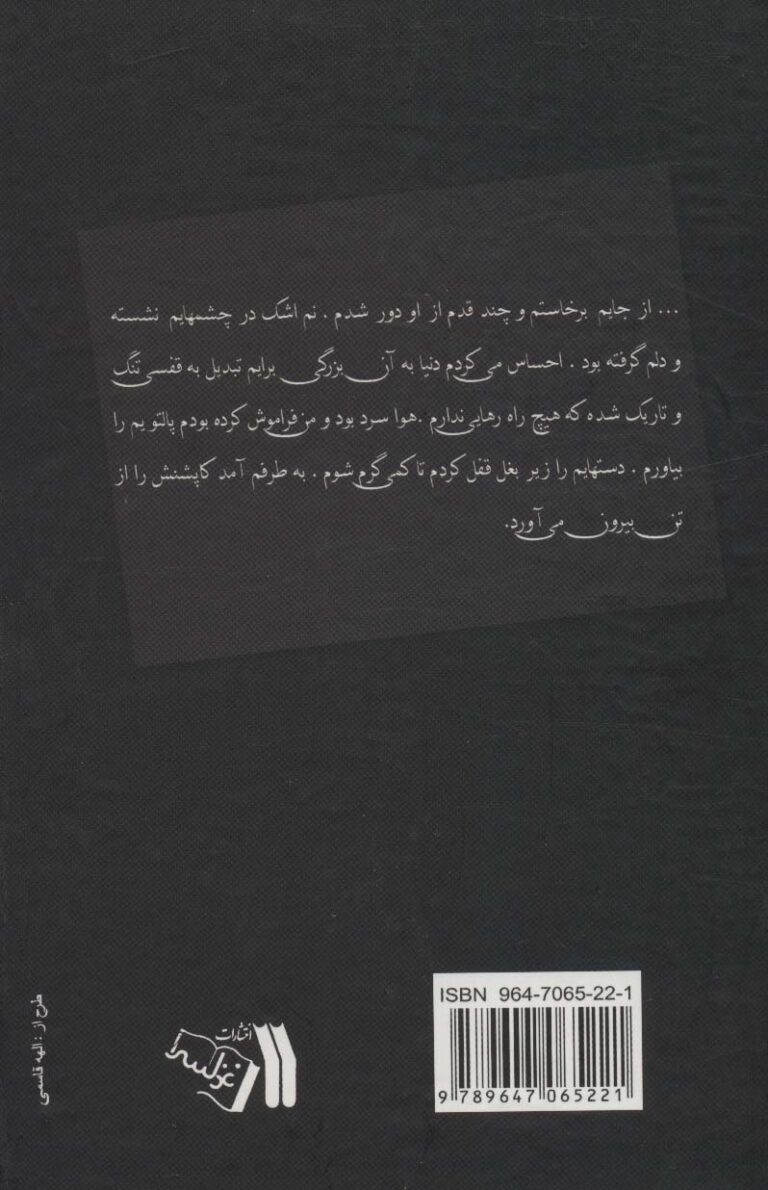 ... از جایم برخاستم و چند قدم از او دور شدم . نم اشک در چشمهایم نشسته
و دلم گرفته بود . احساس می کردم دنیا به آن بزرگی برایم تبدیل به قفسی تنگ
و تاریک شده که هیچ راه رهایی ندارم .هوا سرد بود و من فراموش کرده بودم پالتو یم را
بیاورم . دستهایم را زیر بغل قفل کردم تا کمی گرم شوم . به طرفم آمد کاپشنش را از
تن بیرون می آورد.
طرح از : الهه قاسمی
انتشارات
ISBN 964-7065-22-1
9 789647 065221